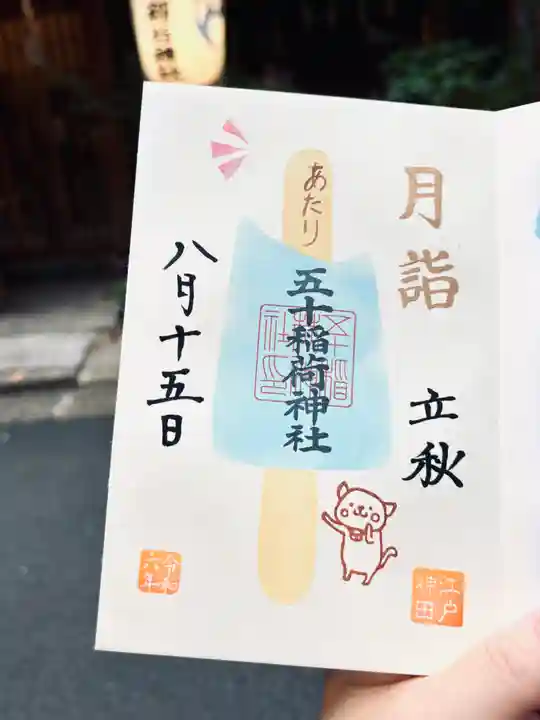 月詣
立秋
あたり
五十稲荷神社
八月十五日
江戸
神田
令和
六年